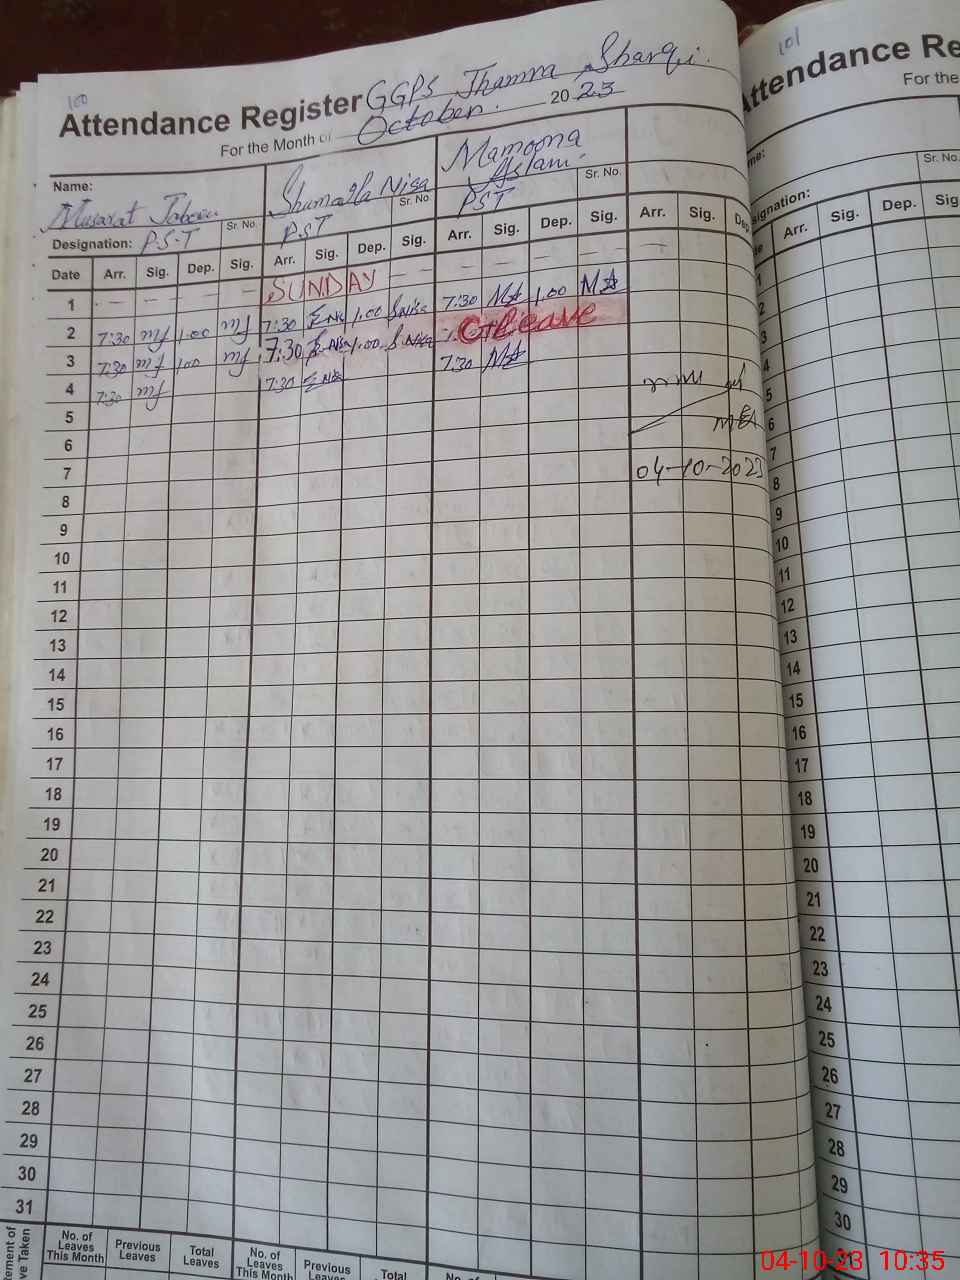 100
Attendance Register GGPS Jhamra Sharqi.
For the Month of October. 2023
Name: Musarat Shumaila Nisa Mamoona Aslam
Sr. No. Sr. No. Sr. No.
Designation: P.S.T PST PST
Date Arr. Sig. Dep. Sig. Arr. Sig. Dep. Sig. Arr. Sig. Dep. Sig. Arr. Sig. Dep
1 SUNDAY
2 7:30 mj 1.00 mj 7:30 1.00 7:30 MA 1.00 MA
3 7:30 mj 1.00 mj 7:30 1.00 Leave
4 7:30 mj 7:30 7:30 MA
5
6
7 04-10-2023
8
9
10
11
12
13
14
15
16
17
18
19
20
21
22
23
24
25
26
27
28
29
30
31
No. of Leaves This Month Previous Leaves Total Leaves No. of Leaves This Month Previous Leaves Total No. of
101
Attendance Re
For the
me:
Sr. No.
signation:
Arr. Sig. Dep. Sig
1
2
3
4
5
6
7
8
9
10
11
12
13
14
15
16
17
18
19
20
21
22
23
24
25
26
27
28
29
30
04-10-23 10:35